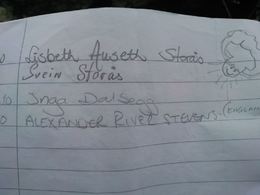 Lisbeth Auseth Storås
Svein Storås
Inga Dalsegg
ALEXANDER RIVER STEVENS (ENGLAND